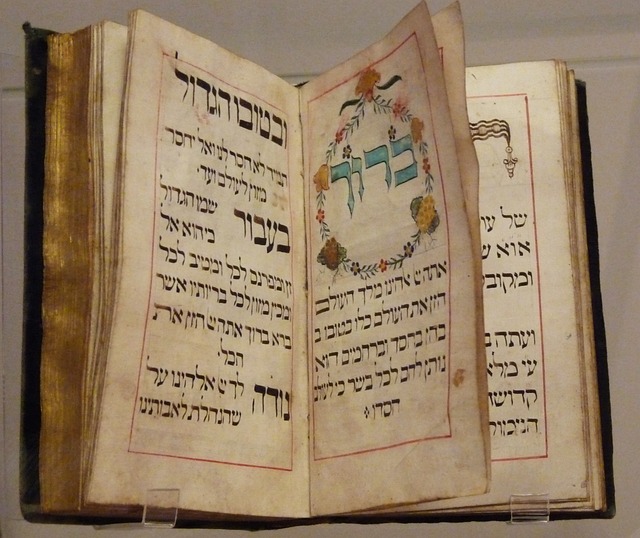 של
ועתה
ברוך
אתה יי אלהינו מלך העולם
הזן את העולם כלו בטובו ב
בחן בחסד וברחמים הוא
נותן לחם לכל בשר כי לעולם
חסדו:
ובטובו הגדול
תמיד לא חסר לנו ואל יחסר
מזון לעולם ועד:
בעבור שמו הגדול
כי הוא אל
זן ומפרנס לכל ומטיב לכל
ומכין מזון לכל בריותיו אשר
ברא ברוך אתה יי הזן את
הכל:
נודה לך יי אלהינו על
שהנחלת לאבותינו